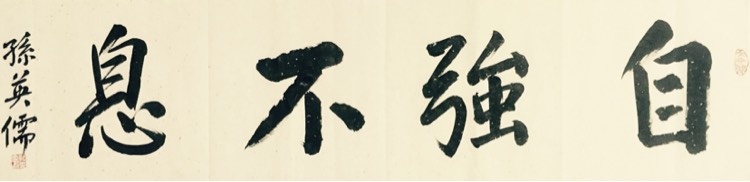 自強不息
孫英儒